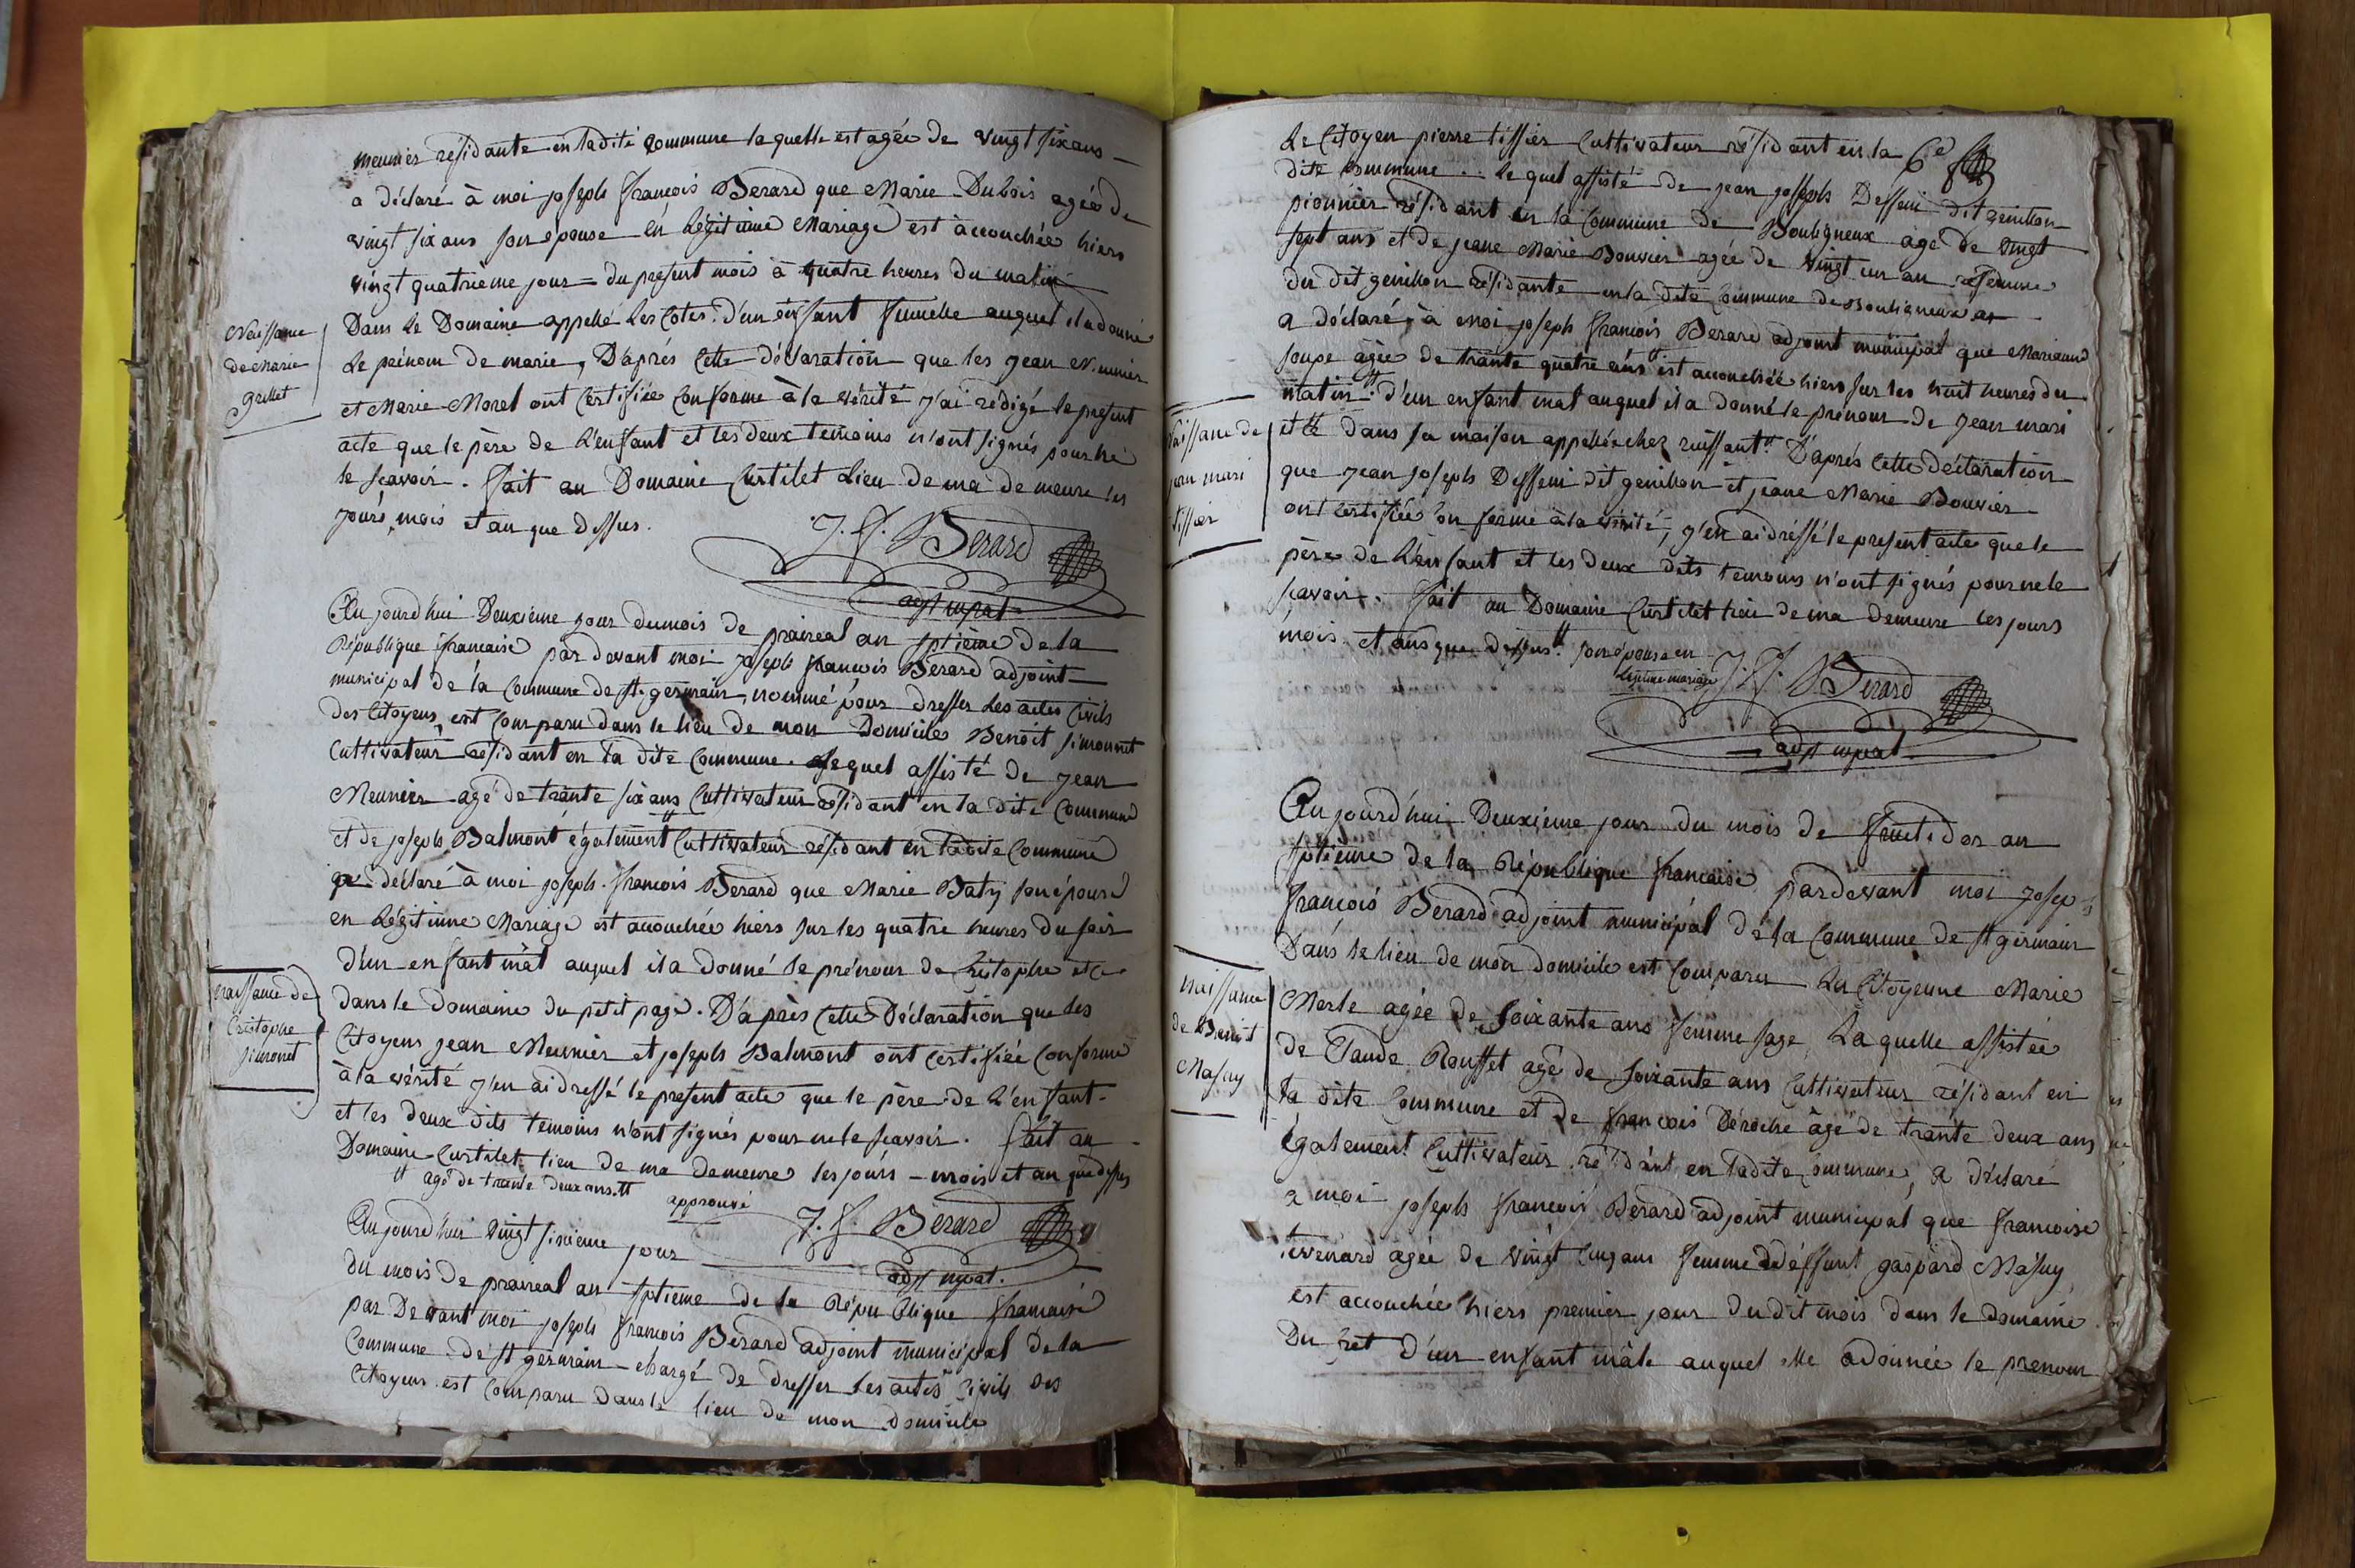 meunier résidante en ladite commune laquelle est agée de vingt six ans
a déclaré à moi joseph françois Berard que Marie Dubois agée de
vingt six ans son épouse en légitime Mariage est accouchée hiers
vingt quatrième jour du present mois à quatre heures du matin
Dans le Domaine appellé les Cotes d'un enfant fumelle auquel il a donné
le prénom de marie, D'après cette déclaration que les jean Munier
et Marie Morel ont certifiée conforme à la vérité j'ai rédigé le present
acte que le père de l'enfant et les deux temoins n'ont signés pour ne
le scavoir. fait au Domaine Curtilet lieu de ma demeure les
jours, mois et an que dessus.
Naissance
de Marie
grillet
J. f. Berard
adjt mpal
Au jourd'hui Deuxième jour du mois de praireal an sptième de la
République francaise par devant moi joseph françois Berard adjoint
municipal de la commune de st. germain, nommé pour dresser les actes civils
des citoyens, est comparu dans le lieu de mon Domicile Benoit simonnet
Cultivateur résidant en la dite commune. lequel assisté de jean
Meunier agé de trante six ans Cultivateur résidant en la dite commune
et de joseph Balmont également Cultivateur résidant en ladite commune
a déclaré à moi joseph francois Berard que Marie Baty son épouse
en légitime Mariage est accouchée hiers sur les quatre heures du soir
d'un enfant mâl auquel il a donné le prénom de Cristophe et ce
dans le domaine du petit page. D'après cette Déclaration que les
Citoyens jean Meunier et joseph Balmont ont certifiée conforme
à la vérité j'en ai dressé le present acte que le père de l'enfant
et les deux dits temoins n'ont signés pour ne le scavoir. fait au
Domaine Curtilet lieu de ma demeure les jours mois et an que dessus
agé de trante deux ans.
approuvé
naissance de
Cristophe
simonet
J. f. Berard
adjt mpal.
Au jourd'hui vingt sixieme jour
du mois de praireal an sptieme de la République francaise
par Devant moi joseph francois Berard adjoint municipal de la
Commune de st germain chargé de dresser les actes civils des
citoyens est comparu dans le lieu de mon domicile
Le Citoyen pierre tissier Cultivateur résidant en la
dite commune. le quel assisté de jean joseph Desseni dit genillon
pionnier résidant en la commune de Bouligneux agé de vingt
sept ans et de jeane Marie Bouvier agée de vingt un an femme
du dit genillon résidante en la dite commune de Bouligneux
a déclaré à moi joseph francois Berard adjoint municipal que Marianne
soupe agée de trante quatre ans est accouchée hiers sur les huit heures du
matin d'un enfant mal auquel il a donné le prénom de jean mari
et ce dans sa maison appellée chez ruissant D'après cette déclaration
que jean joseph Desseni dit genillon et jeane Marie Bouvier
ont certifiée conforme à la vérité, j'en ai dressé le present acte que le
père de l'enfant et les deux dits temoins n'ont signés pour ne le
scavoir. fait au Domaine Curtilet lieu de ma demeure les jours
mois et ans que dessus. son épouse en
légitime mariage
Naissance de
jean mari
tissier
J. f. Berard
adjt mpal
Au jourd'hui Deuxieme jour du mois de fructidor an
sptieme de la République francaise pardevant moi josep
francois Berard adjoint municipal de la commune de st germain
Dans le lieu de mon domicile est comparu la Citoyenne Marie
Merle agée de soixante ans femme sage, laquelle assistée
de Claude Rousset agé de soixante ans Cultivateur résidant en
la dite Commune et de francois Déroche âgé de trante deux ans
également Cultivateur résidant en ladite commune, a déclaré
a moi joseph francois Berard adjoint municipal que francoise
tevenard agée de vingt cinq ans femme de deffunt gaspard Masuy
est accouchée hiers premier jour du dit mois dans le domaine
Du d'un enfant mâle auquel elle a donnée le prenom
naissance
de Benoit
Masuy